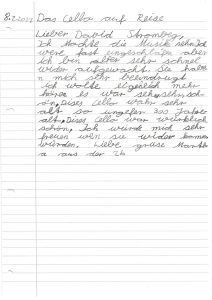 8.2.2024 Das Cello auf Reise
Lieber David Stromberg,
Ich mochte die Musik sehr. Ich
were fast eingeschlafe aber
ich bin aber sehr schnel
wider aufgewacht. Sie habe
n mich sehr beeindrugt
ich wolte eigenlich mehr
höre es war sehr sehr sch
ön. Dises cello wahr sehr
alt so ungefer 300 Jahre
alt. Dises Cello war würklich
schön. Ich würde mich sehr
freuen wen sie wider komen
würden. Liebe grüse
a aus der 2b